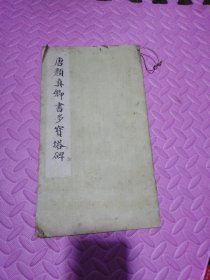 唐顏真卿書多寶塔碑